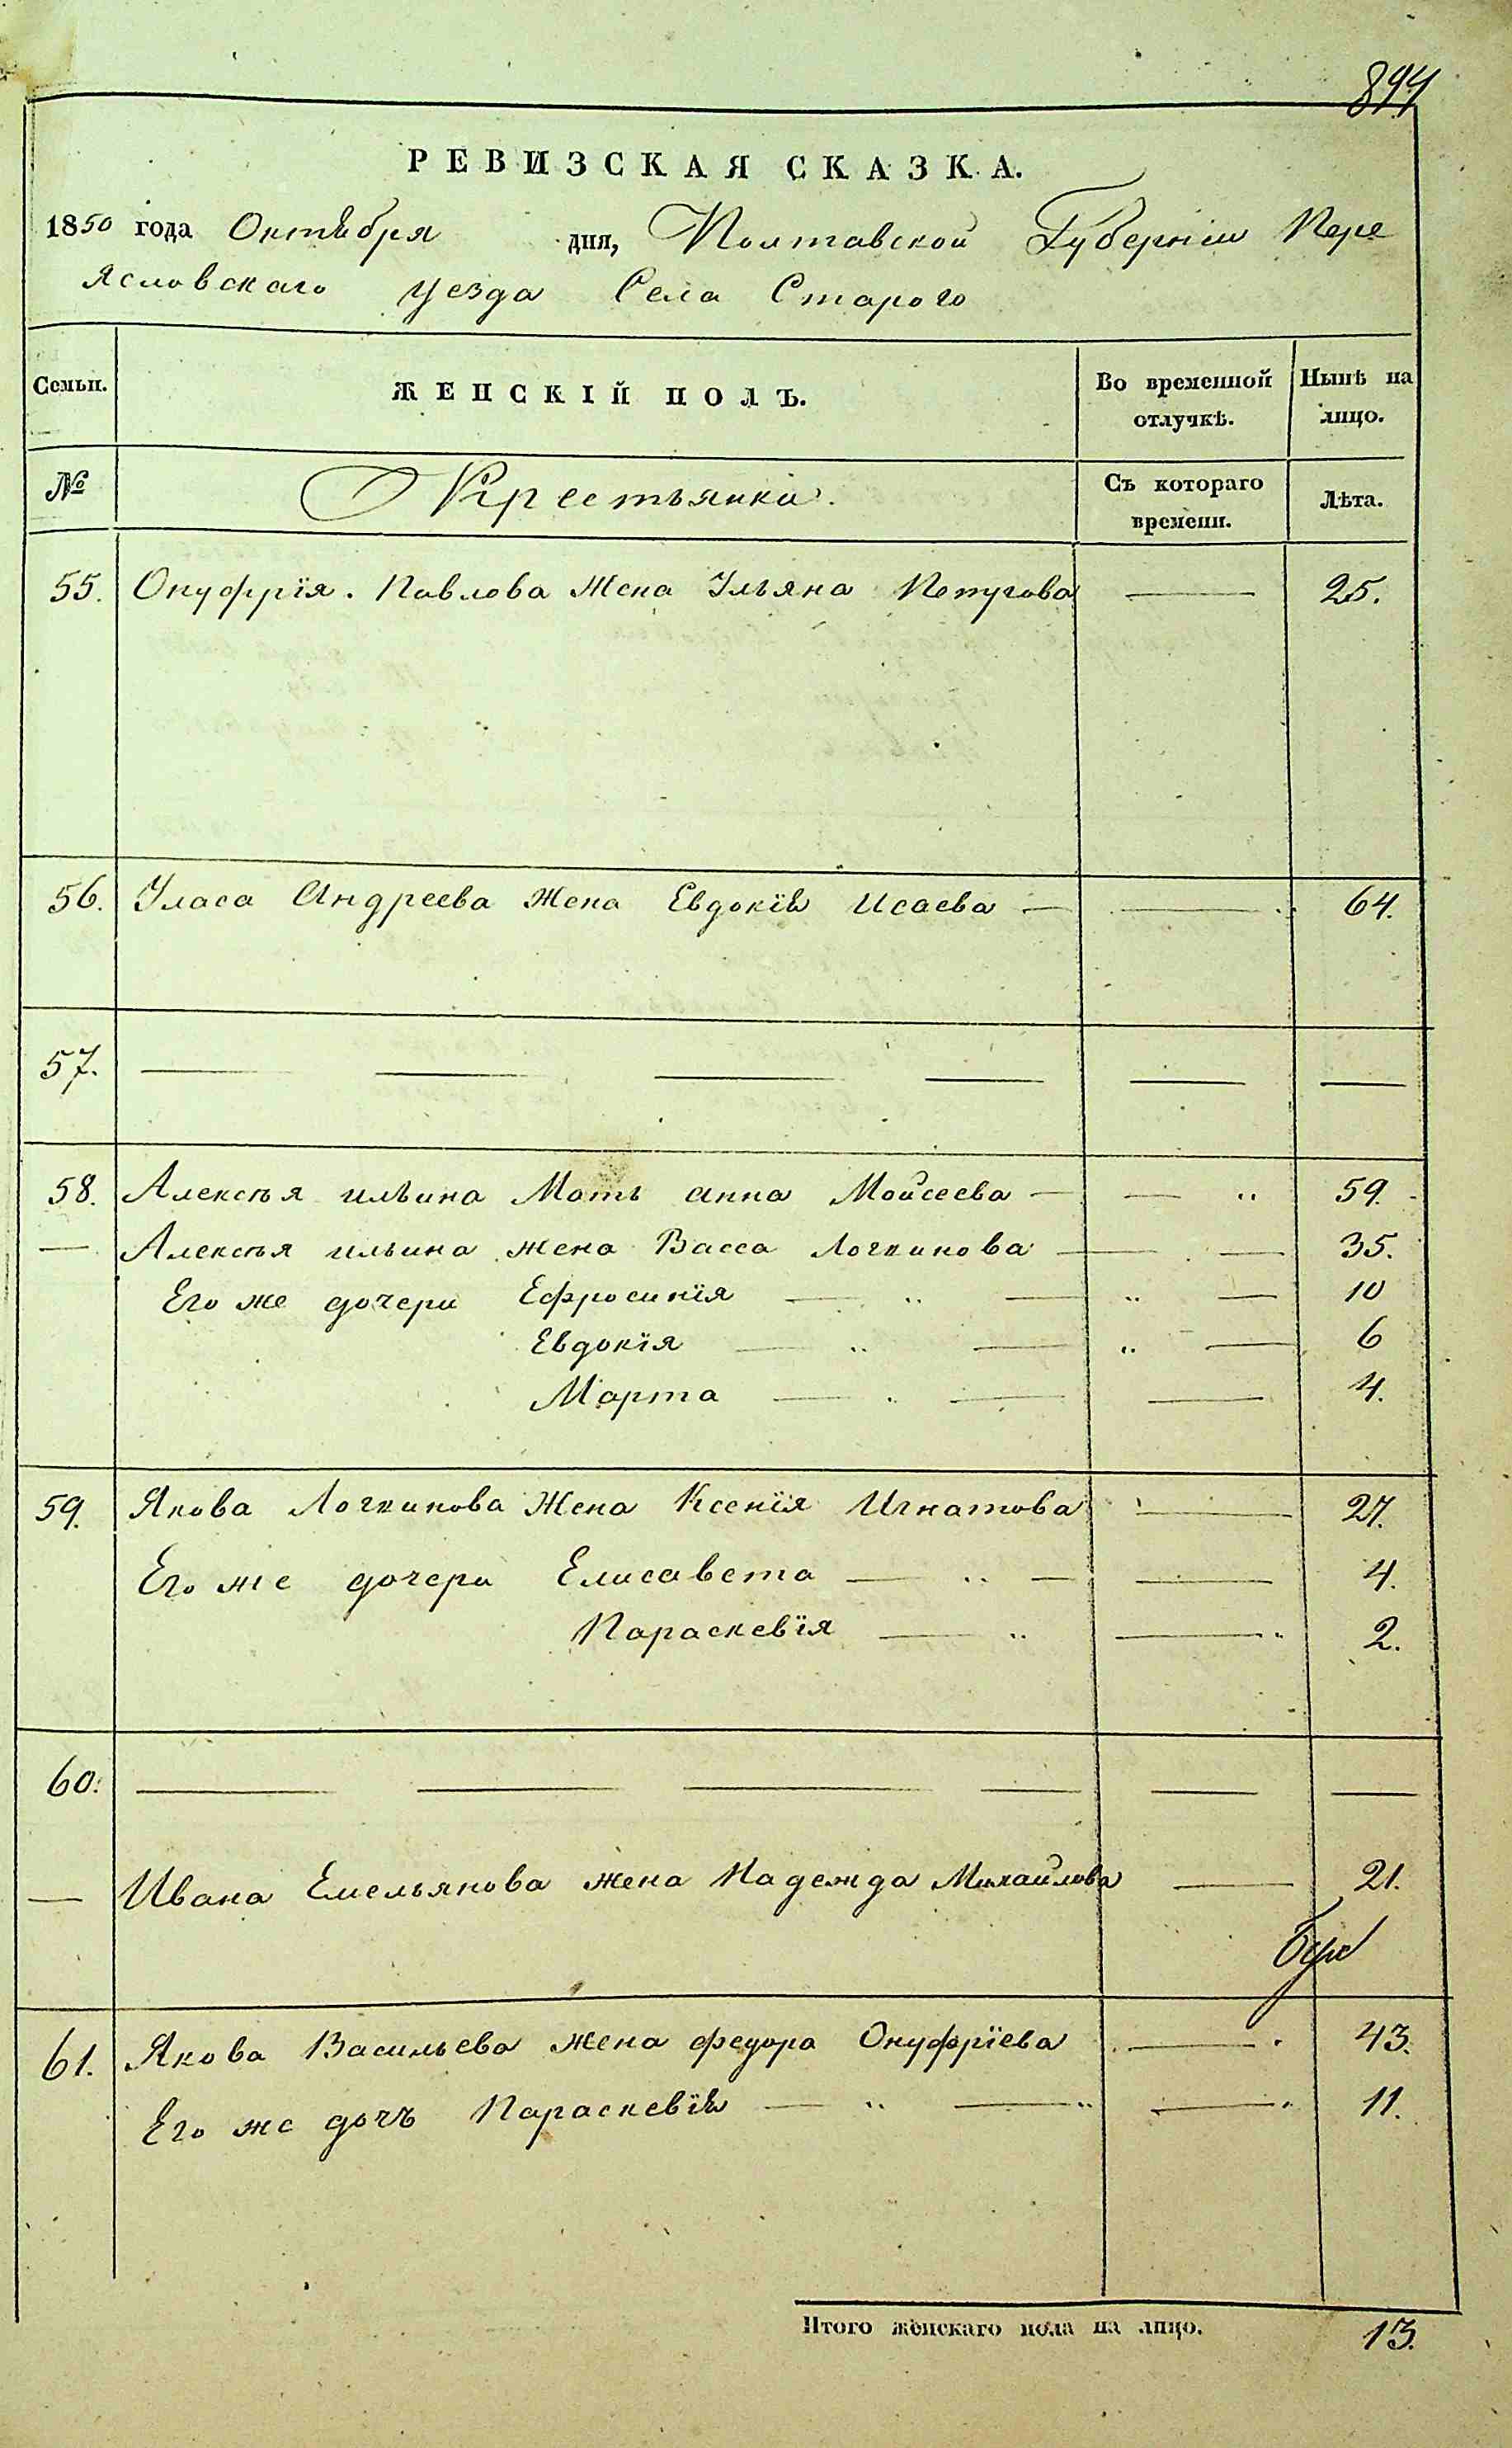 894
РЕВИЗСКАЯ СКАЗКА.
1850 года Октября дня, Полтавской Губерніи Пере
ясловскаго уезда Села Старого
Семьи. ЖЕНСКІЙ ПОЛЪ. Во временной отлучкѣ. Нынѣ на лицо.
№ Крестьянки. Съ котораго времени. Лѣта.
55. Онуфрія Павлова Жена Ульяна 25.
56. Уласа Андреева Жена Евдокія Исаева 64.
57.
58. Алексѣя ильина Мать анна Мойсеева 59.
Алексѣя ильина жена Васса Логвинова 35.
Его же дочери Ефросинїя 10
Евдокїя 6
Марта 4.
59. Якова Логвинова Жена Ксенїя Игнатова 27.
Его же дочери Елисавета 4.
Параскевїя 2.
60.
Ивана Емельянова жена Надежда Михайлова 21.
61. Якова Васильева жена федора Онуфрїева 43.
Его же дочъ Параскевїя 11.
Итого женскаго пола на лицо. 13.